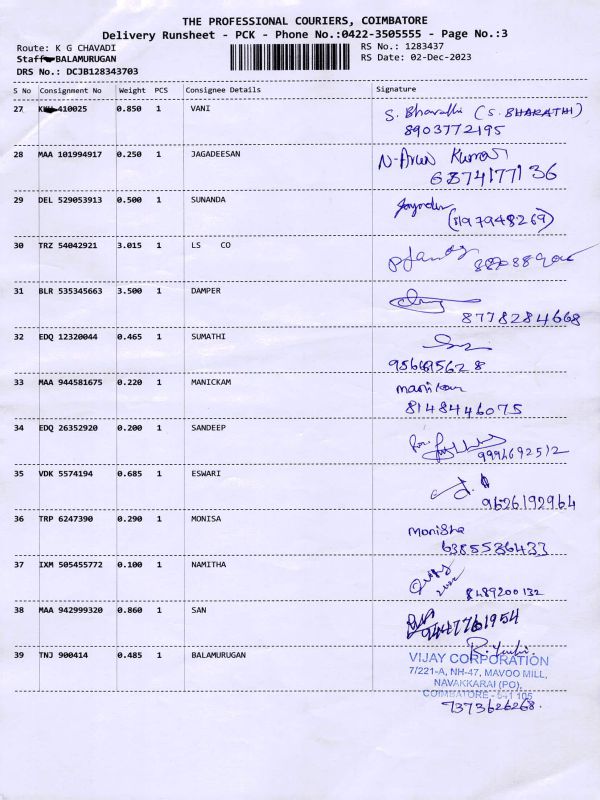 THE PROFESSIONAL COURIERS, COIMBATORE
Delivery Runsheet - PCK - Phone No.:0422-3505555 - Page No.:3
Route: K G CHAVADI RS No.: 1283437
Staff BALAMURUGAN RS Date: 02-Dec-2023
DRS No.: DCJB128343703
S No Consignment No Weight PCS Consignee Details Signature
27 410025 0.850 1 VANI S. Bharathi (S. BHARATHI)
8903772195
28 MAA 101994917 0.250 1 JAGADEESAN N-Arun Kumar
6374177136
29 DEL 529053913 0.500 1 SUNANDA
30 TRZ 54042921 3.015 1 LS CO
31 BLR 535345663 3.500 1 DAMPER
8778284668
32 EDQ 12320044 0.465 1 SUMATHI
33 MAA 944581675 0.220 1 MANICKAM
8148446075
34 EDQ 26352920 0.200 1 SANDEEP
9994692512
35 VDK 5574194 0.685 1 ESWARI
9626192964
36 TRP 6247390 0.290 1 MONISA Monisha
6385536433
37 IXM 505455772 0.100 1 NAMITHA
8489200132
38 MAA 942999320 0.860 1 SAN
9447761954
39 TNJ 900414 0.485 1 BALAMURUGAN
VIJAY CORPORATION
7/221-A, NH-47, MAVOO MILL,
NAVAKKARAI (PO),
COIMBATORE - 641 105
7373626268.